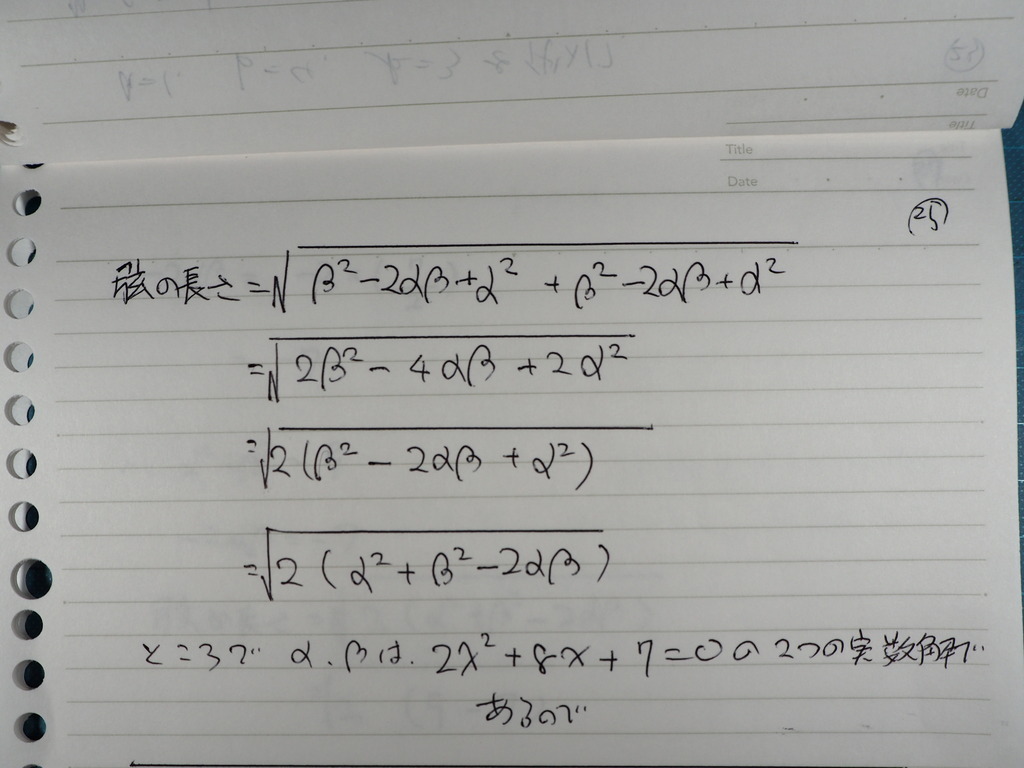 Title
Date
㉕
弦の長さ=√(β²-2αβ+α²+β²-2αβ+α²)
=√(2β²-4αβ+2α²)
=√(2(β²-2αβ+α²))
=√(2(α²+β²-2αβ))
ところで α.βは. 2x²+8x+7=0の2つの実数解で
あるので